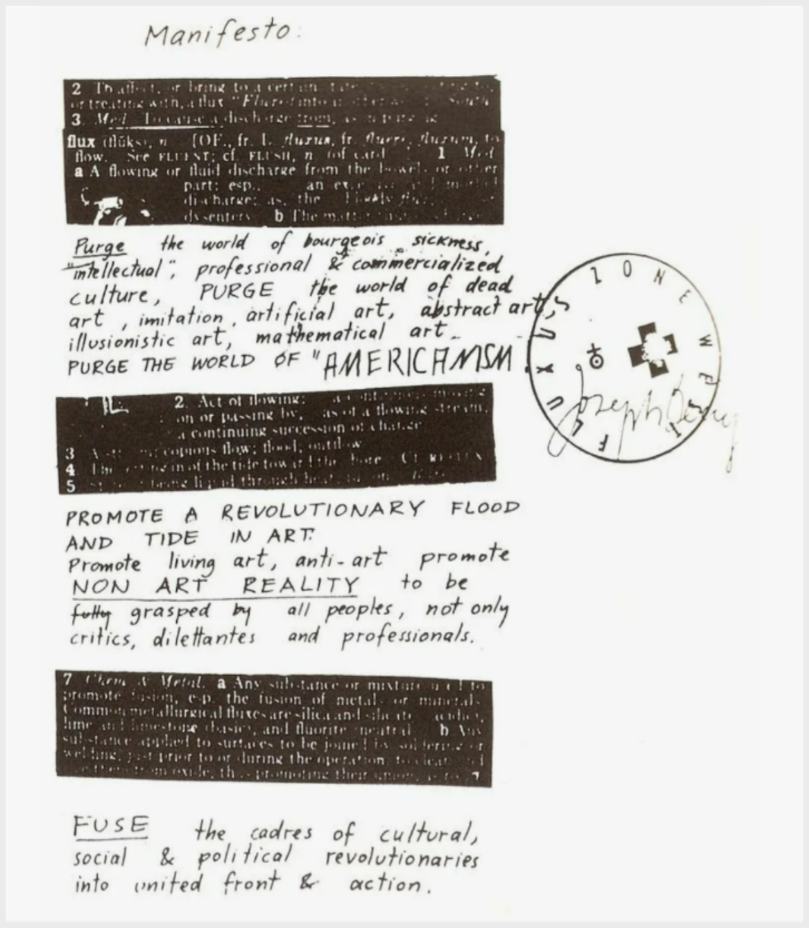 Manifesto:
2 To affect, or bring to a certain
or treating with, a flux "Fluxed into
3 Med. To cause a discharge from, as in purging
flux (flŭks), n. [OF., fr. L. fluxus, fr. fluere, fluxum, to
flow. See FLUENT; cf. FLUSH, n. (of cards).] 1 Med.
a A flowing or fluid discharge from the bowels or other
part; esp., an
discharge; as, the bloody flux
dysentery b The matter
Purge the world of bourgeois sickness,
"intellectual", professional & commercialized
culture, PURGE the world of dead
art, imitation, artificial art, abstract art,
illusionistic art, mathematical art_
PURGE THE WORLD OF "AMERICANISM".
FLUXUS ZONE WEST
Joseph Beuys
2. Act of flowing: a continuous moving
on or passing by, as of a flowing stream;
a continuing succession of change
3 A copious flow; flood; outflow
4 The setting in of the tide toward the shore. Cf. REFLUX
5 State of being liquid through heat
PROMOTE A REVOLUTIONARY FLOOD
AND TIDE IN ART.
Promote living art, anti-art promote
NON ART REALITY to be
fully grasped by all peoples, not only
critics, dilettantes and professionals.
7 Chem. & Metal. a Any substance or mixture used to
promote fusion, esp. the fusion of metals or minerals
Common metallurgical fluxes are silica and silicates (acidic),
lime and limestone (basic), and fluorite (neutral) b Any
substance applied to surfaces to be joined by soldering or
welding, just prior to or during the operation, to clean and
free them from oxide, thus promoting their union, as
FUSE the cadres of cultural,
social & political revolutionaries
into united front & action.